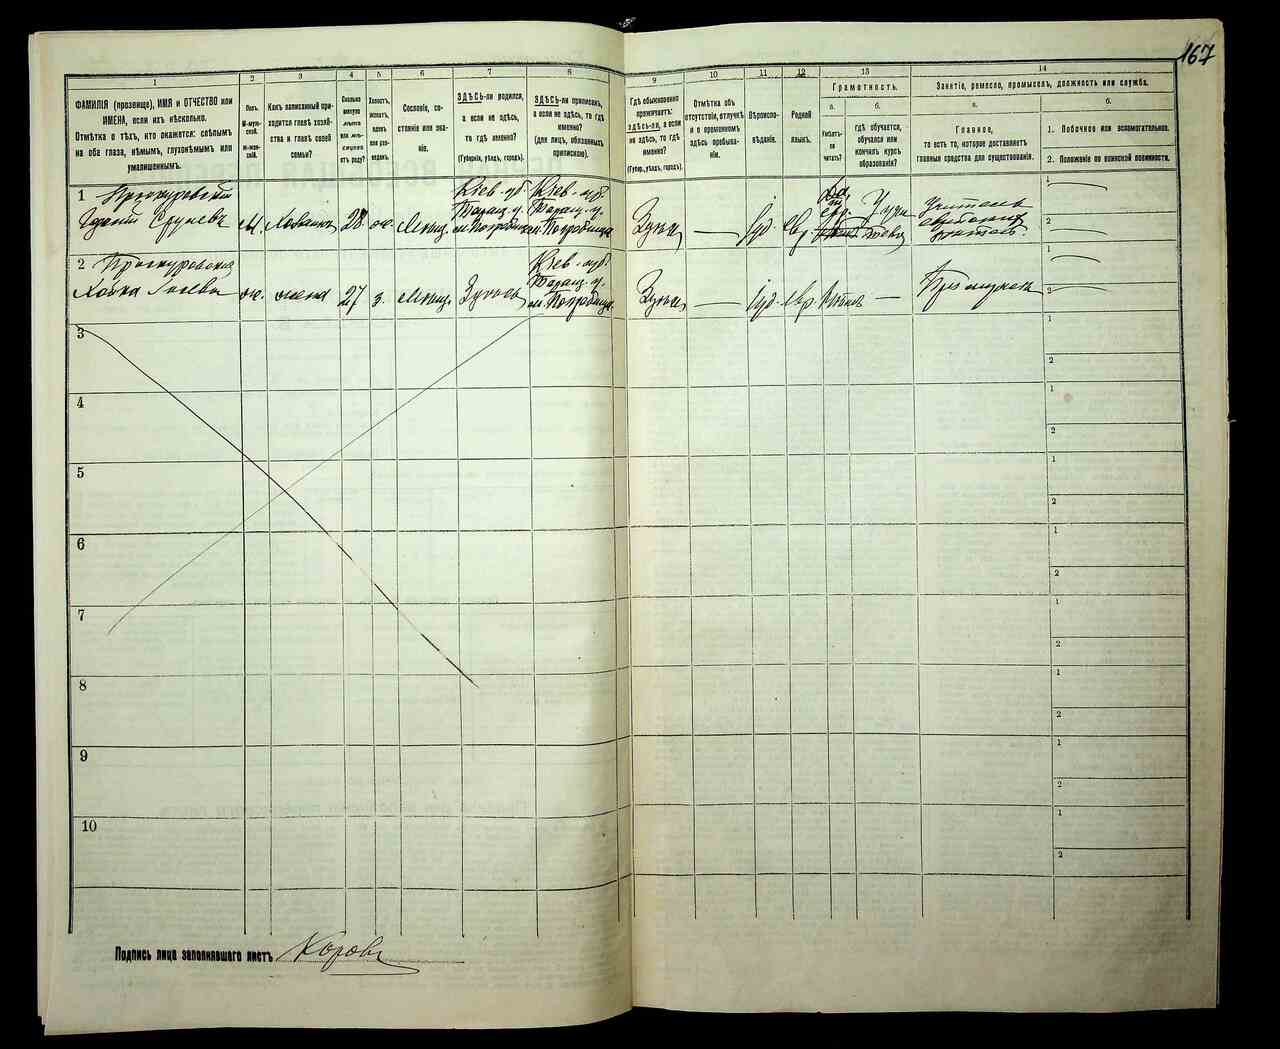 167
1
2
3
4
5
6
7
8
9
10
11
12
13
14
ФАМИЛІЯ (прозвище), ИМЯ и ОТЧЕСТВО или
ИМЕНА, если ихъ нѣсколько.
Отмѣтка о тѣхъ, кто окажется: слѣпымъ
на оба глаза, нѣмымъ, глухонѣмымъ или
умалишеннымъ.
Полъ.
М-муж-
ской.
Ж-жен-
скій.
Какъ записанный при-
ходится главѣ хозяй-
ства и главѣ своей
семьи?
Сколько
минуло
лѣтъ
или мѣ-
сяцевъ
отъ роду?
Холостъ,
женатъ,
вдовъ
или раз-
веденъ.
Сословіе, со-
стояніе или зва-
ніе.
ЗДѢСЬ-ли родился,
а если не здѣсь,
то гдѣ именно?
(Губернія, уѣздъ, городъ).
ЗДѢСЬ-ли приписанъ,
а если не здѣсь, то гдѣ
именно?
(для лицъ, обязанныхъ
припиской).
Гдѣ обыкновенно
проживаетъ:
здѣсь-ли, а если
не здѣсь, то гдѣ
именно?
(Губер., уѣздъ, городъ).
Отмѣтка объ
отсутствіи, отлучкѣ
и о временномъ
здѣсь пребыва-
ніи.
Вѣроиспо-
вѣданіе.
Родной
языкъ.
Грамотность.
а.
Умѣетъ-
ли
читать?
б.
гдѣ обучается,
обучался или
кончилъ курсъ
образованія?
Занятіе, ремесло, промыселъ, должность или служба.
а.
Главное,
то есть то, которое доставляетъ
главныя средства для существованія.
б.
1. Побочное или вспомогательное.
2. Положеніе по воинской повинности.
1 Проскуровскій
М. Хозяинъ 28 ж. Мѣщ.
Кіев. губ.
Таращ. у.
м. Погребище
Кіев. губ.
Таращ. у.
м. Погребище
— Іуд. Евр.
Да
Учитель
1
2
2 Проскуровская
Ховка
ж. жена 27 з. Мѣщ.
Кіев. губ.
Таращ. у.
м. Погребище
— Іуд. Евр. —
При мужѣ
1
2
3
1
2
4
1
2
5
1
2
6
1
2
7
1
2
8
1
2
9
1
2
10
1
2
Подпись лица заполнявшаго листъ